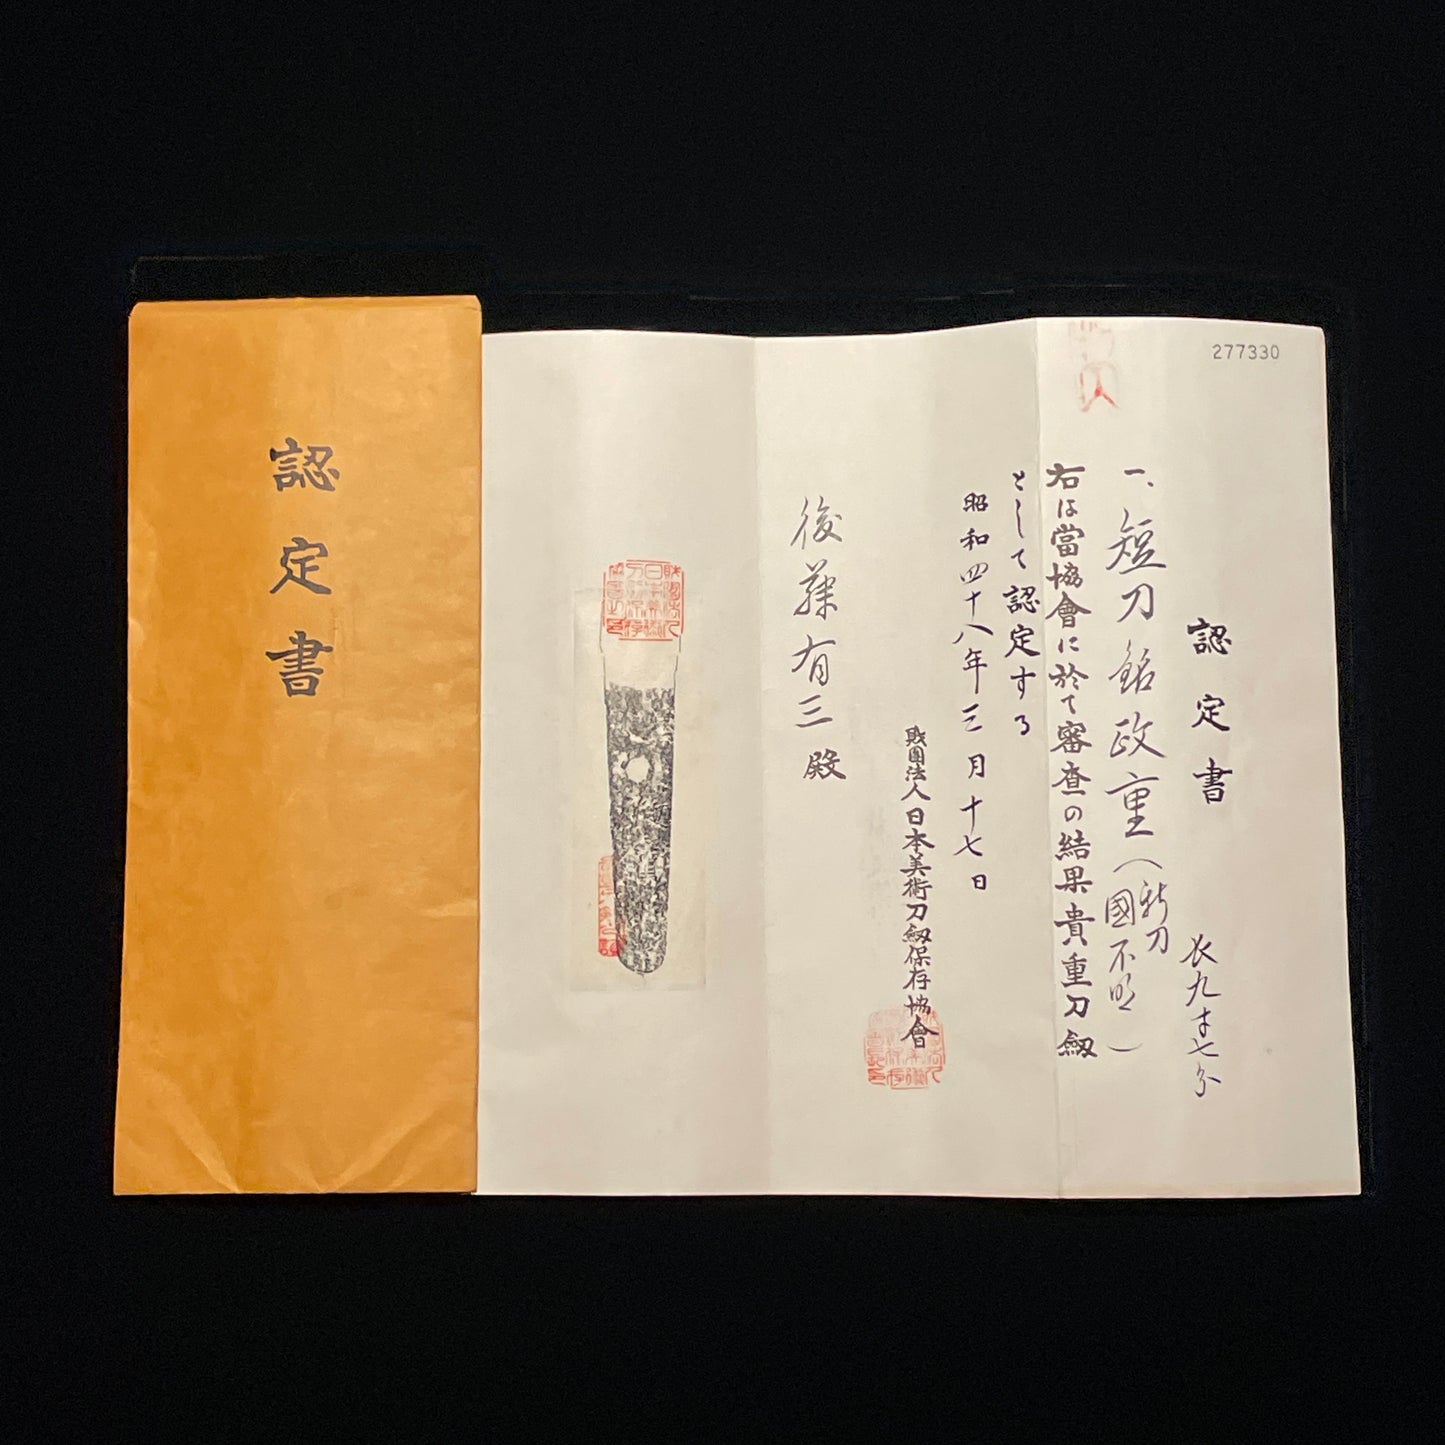 認定書
277330
認定書
長九寸七分
一、短刀銘政重(新刀國不明)
右は當協會に於て審査の結果貴重刀劔
として認定する
昭和四十八年三月十七日
財團法人日本美術刀劔保存協會
後藤有三殿